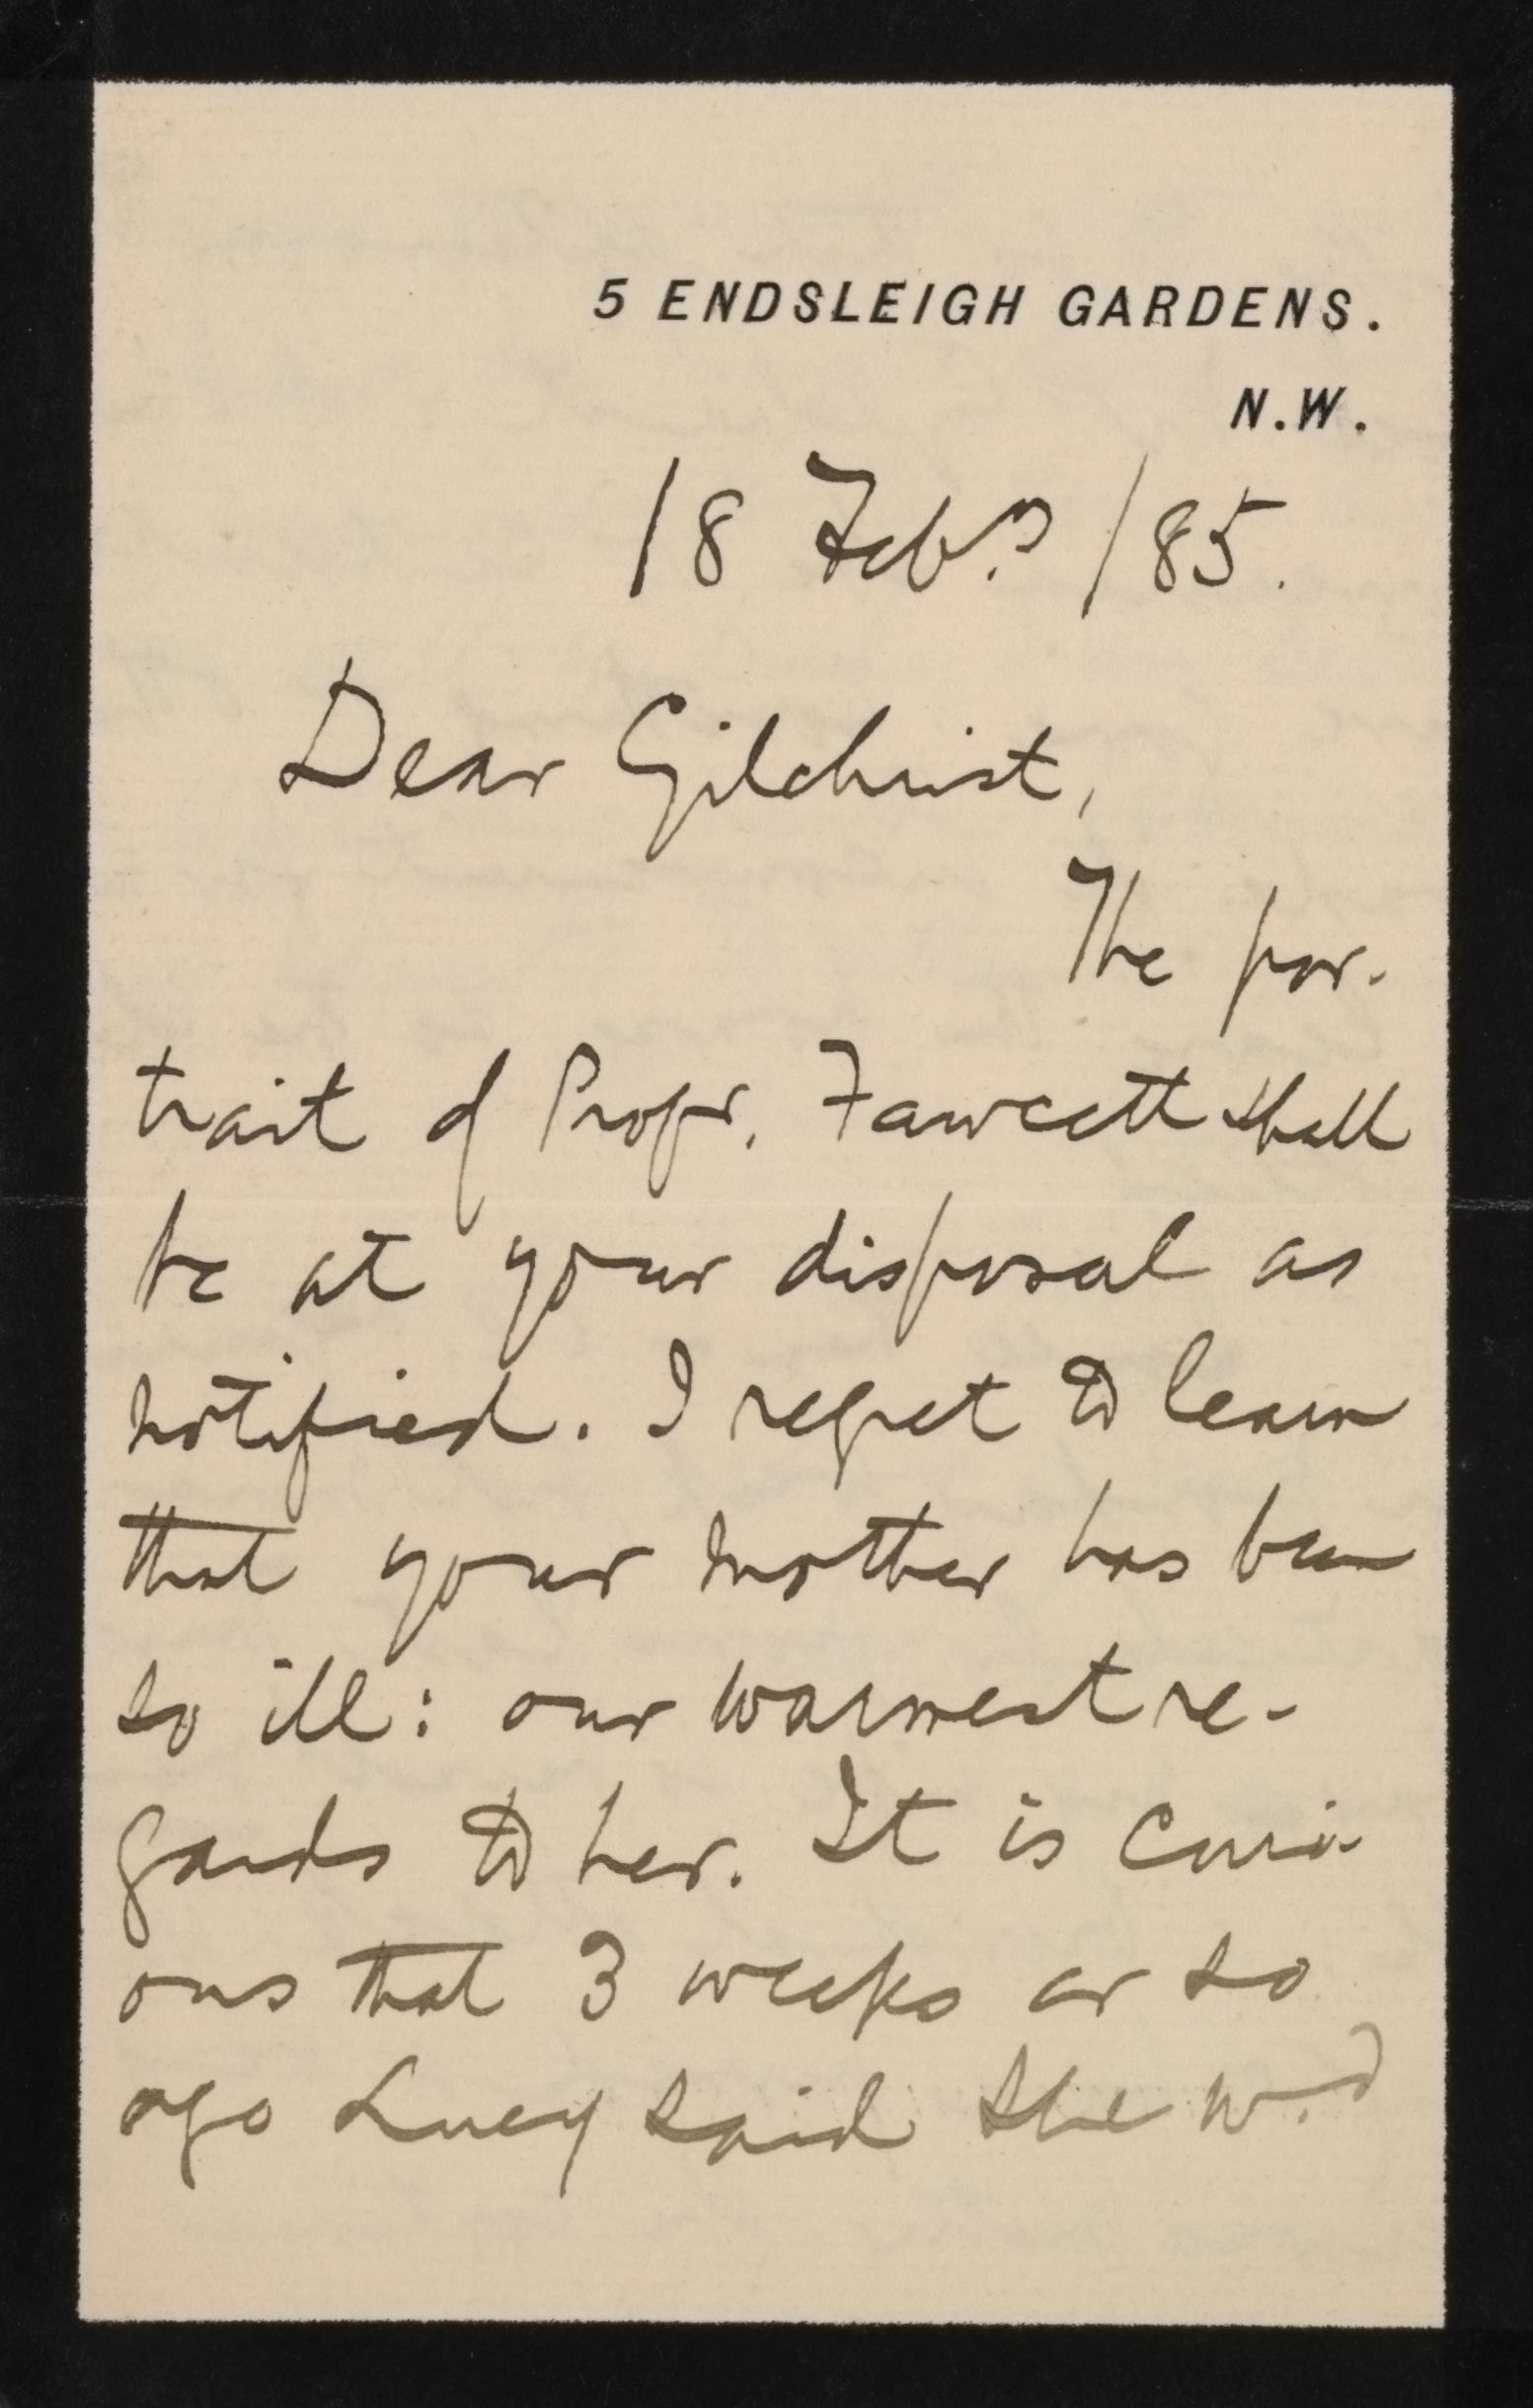 5 ENDSLEIGH GARDENS.
N.W.
18 Feb.y /85.
Dear Gilchrist,
The por-
trait of Profr. Fawcett shall
be at your disposal as
notified. I regret to learn
that your mother has been
so ill: our warmest re-
gards to her. It is curi-
ous that 3 weeks or so
ago Lucy said she w.d